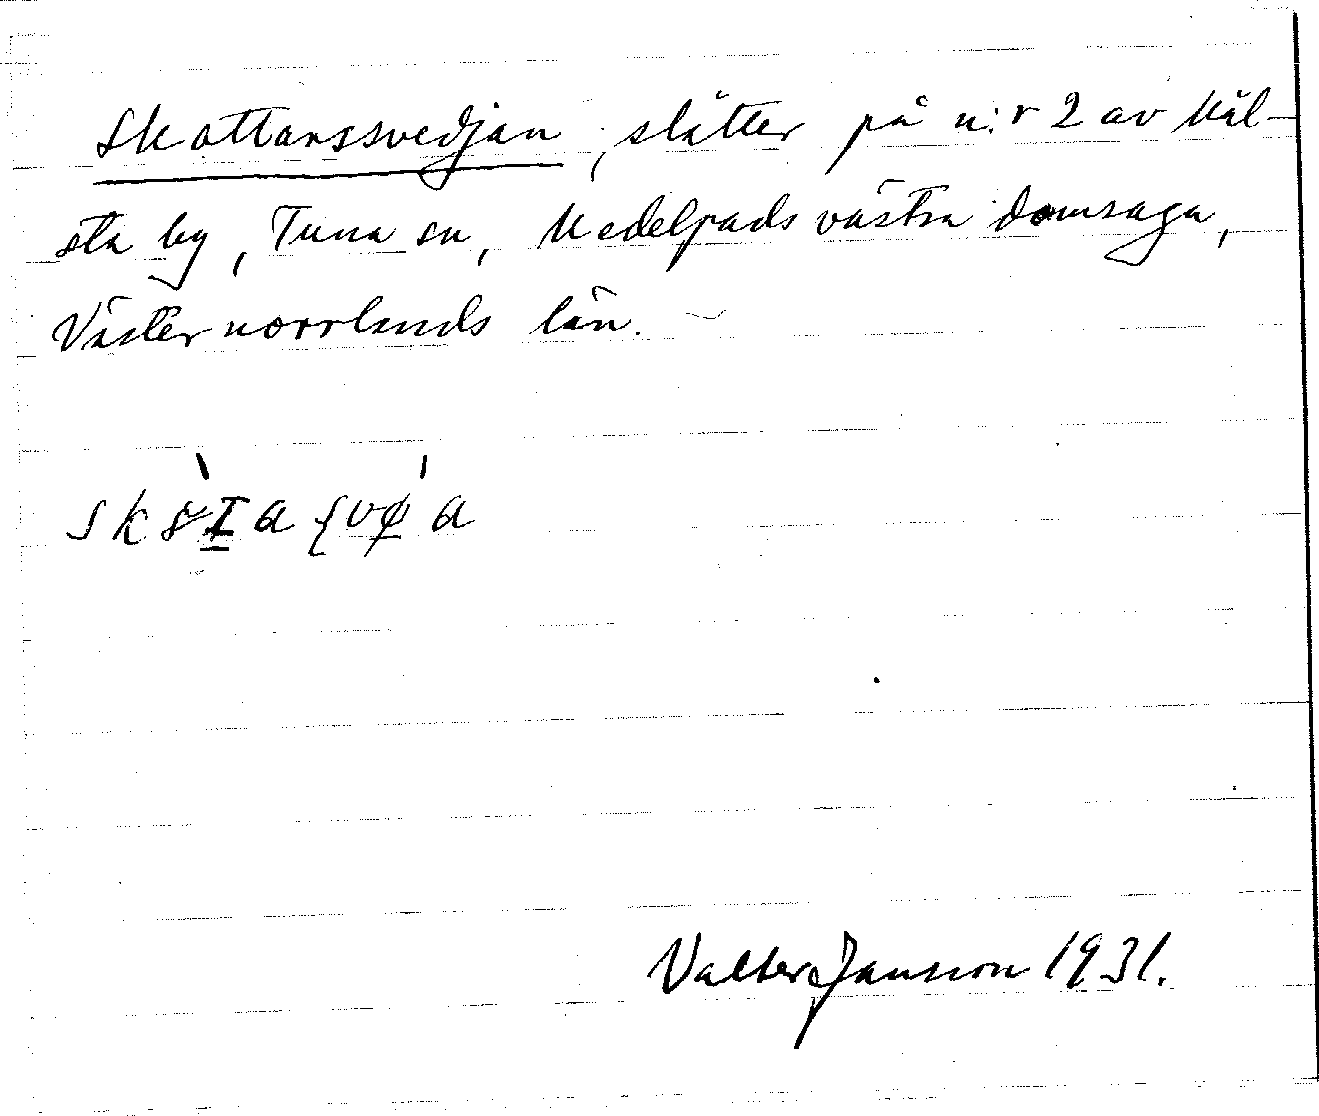 Skottarssvedjan, slåtter på n:r 2 av Mäl-
sta by, Tuna sn, Medelpads västra domsaga,
Västernorrlands län.
Valter Jansson 1931.